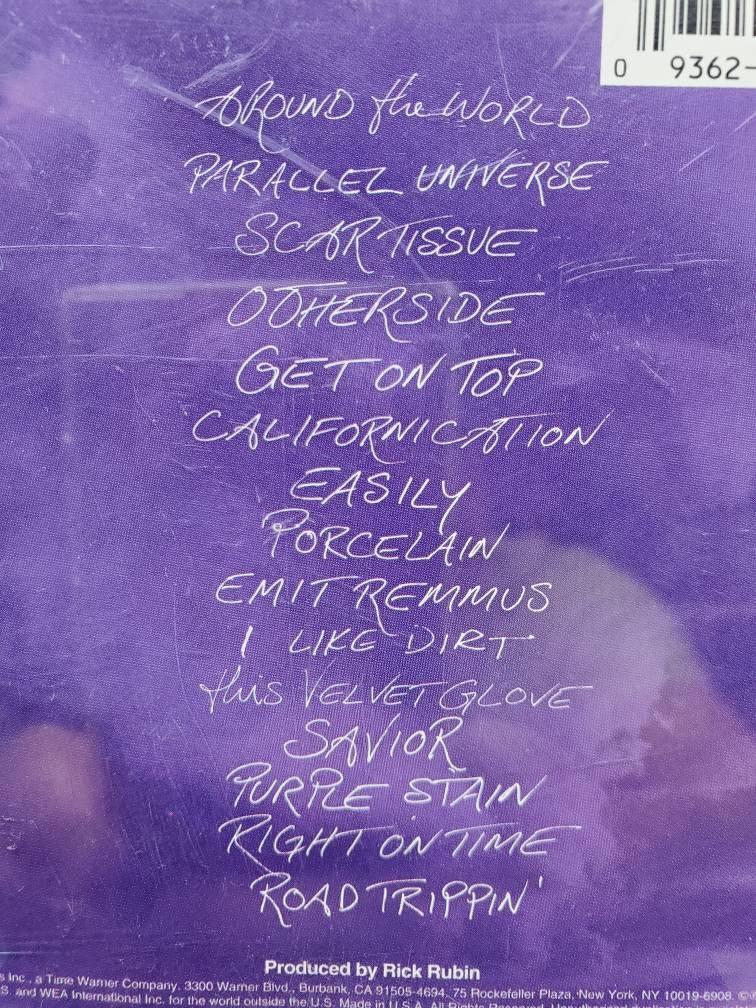 0 9362-
AROUND the WORLD
PARALLEL UNIVERSE
SCAR TISSUE
OTHERSIDE
GET ON TOP
CALIFORNICATION
EASILY
PORCELAIN
EMIT REMMUS
I LIKE DIRT
this VELVET GLOVE
SAVIOR
PURPLE STAIN
RIGHT ON TIME
ROAD TRIPPIN'
Produced by Rick Rubin
s Inc., a Time Warner Company. 3300 Warner Blvd., Burbank, CA 91505-4694. 75 Rockefeller Plaza, New York, NY 10019-6908. ©
S. and WEA International Inc. for the world outside the U.S. Made in U.S.A. All Rights Reserved. Unauthorized